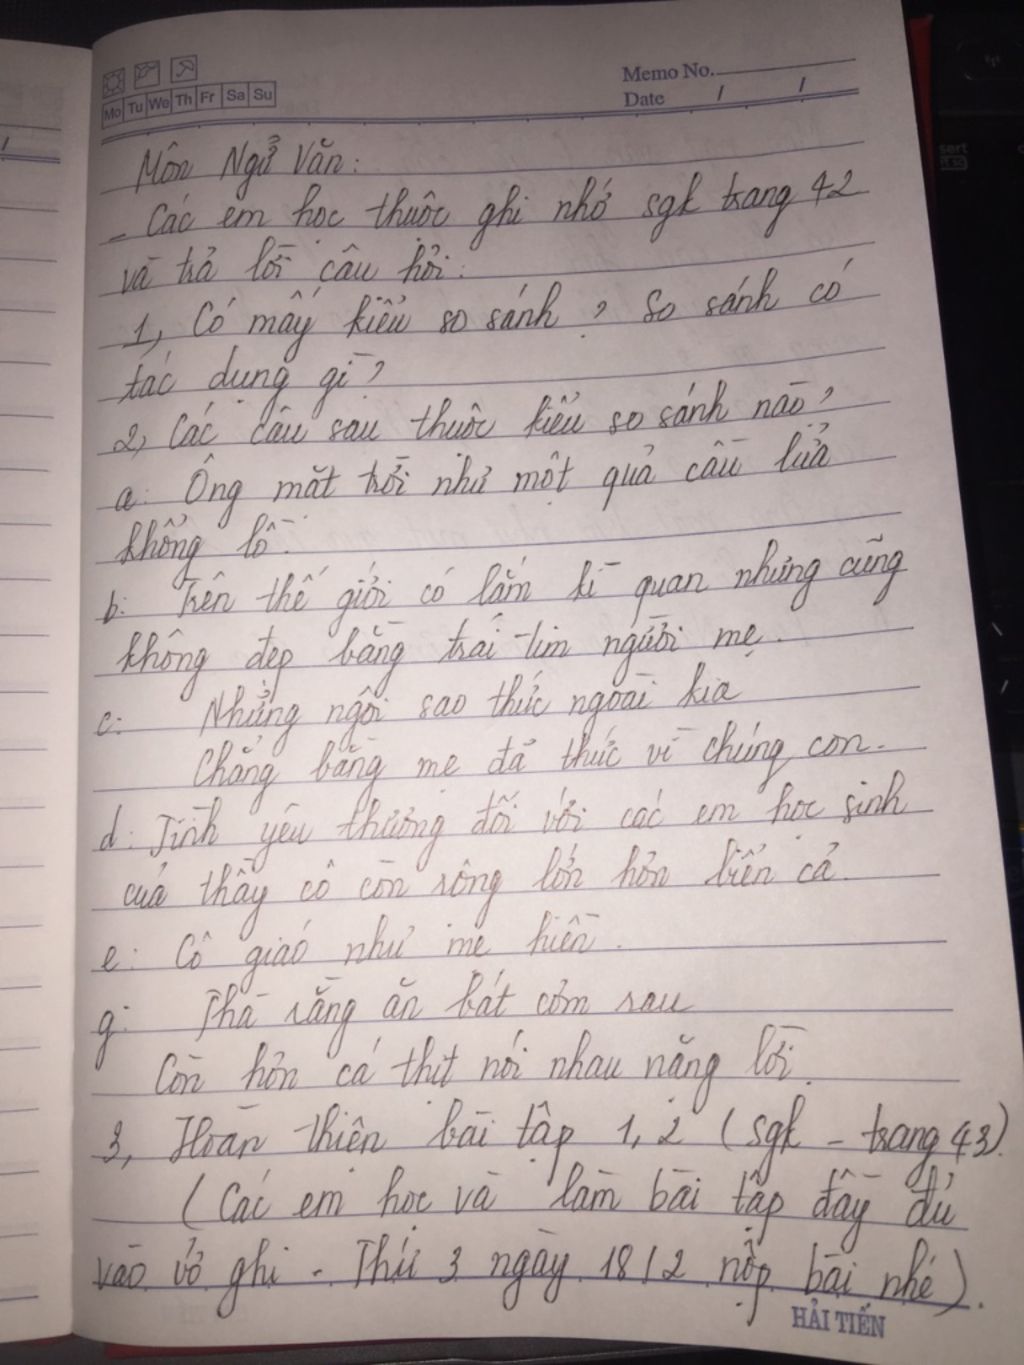 Memo No.
Mo Tu We Th Fr Sa Su
Date / /
Môn Ngữ Văn:
- Các em học thuộc ghi nhớ sgk trang 42
và trả lời câu hỏi:
1, Có mấy kiểu so sánh? So sánh có
tác dụng gì?
2, Các câu sau thuộc kiểu so sánh nào?
a: Ông mặt trời như một quả cầu lửa
khổng lồ.
b: Trên thế giới có lắm kì quan nhưng cũng
không đẹp bằng trái tim người mẹ.
c: Những ngôi sao thức ngoài kia
Chẳng bằng mẹ đã thức vì chúng con.
d: Tình yêu thương đối với các em học sinh
của thầy cô còn rộng lớn hơn biển cả.
e: Cô giáo như mẹ hiền.
g: Thà rằng ăn bát cơm rau
Còn hơn cá thịt nói nhau nặng lời.
3, Hoàn thiện bài tập 1, 2 (sgk - trang 43).
(Các em học và làm bài tập đầy đủ
vào vở ghi - Thứ 3 ngày 18/2 nộp bài nhé).
HẢI TIẾN